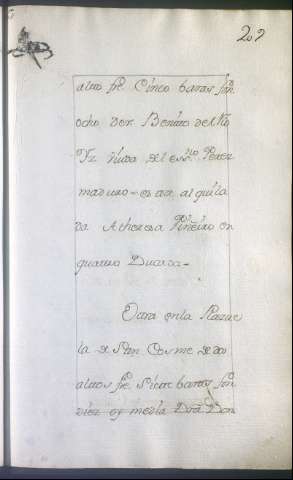 209
altos fte. Cinco baras fon
ocho Dor. Benito de
Yz hiuda del essno. Perez
maduro = estar alquila
da Atheresa Piñeiro en
quattro Ducados =
Otra en la Plazue
la de San Cosme de dos
altos fte. Siete baras fon
diez y media Dra. Don